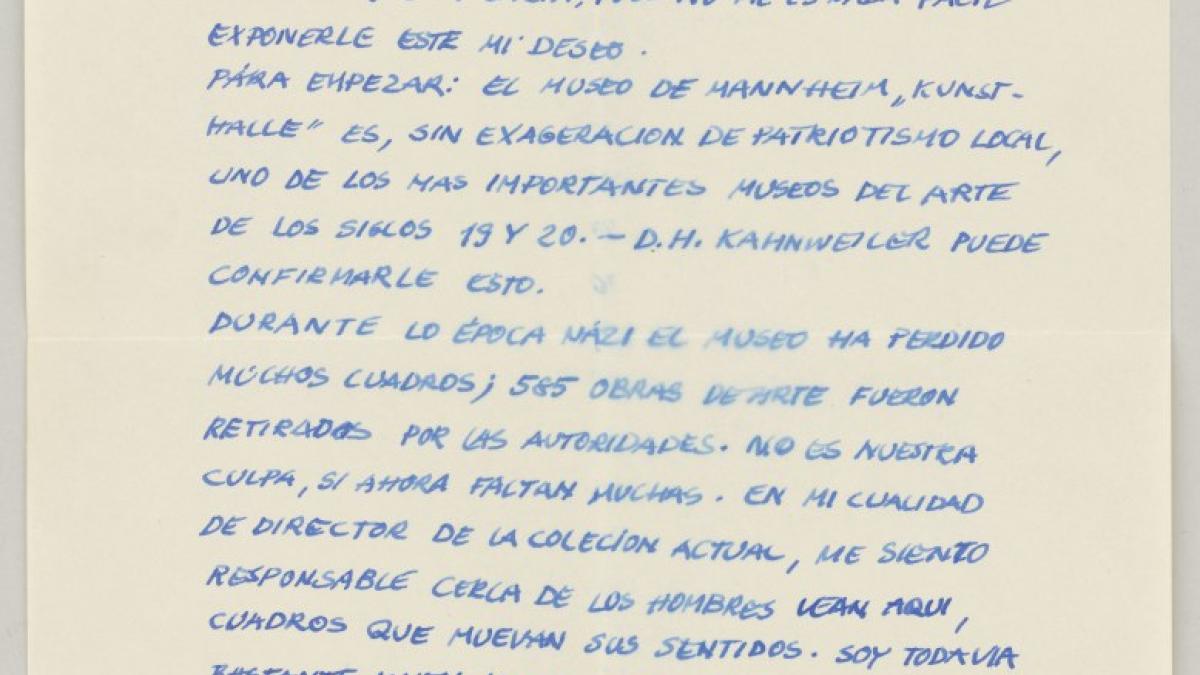 NO ME ES NADA FÁCIL
EXPONERLE ESTE MI DESEO.
PÁRA EMPEZAR: EL MUSEO DE MANNHEIM „KUNST-
HALLE" ES, SIN EXAGERACION DE PATRIOTISMO LOCAL,
UNO DE LOS MAS IMPORTANTES MUSEOS DEL ARTE
DE LOS SIGLOS 19 Y 20. — D.H. KAHNWEILER PUEDE
CONFIRMARLE ESTO.
DURANTE LO ÉPOCA NÁZI EL MUSEO HA PERDIDO
MUCHOS CUADROS; 585 OBRAS DE ARTE FUERON
RETIRADOS POR LAS AUTORIDADES. NO ES NUESTRA
CULPA, SI AHORA FALTAN MUCHAS. EN MI CUALIDAD
DE DIRECTOR DE LA COLECION ACTUAL, ME SIENTO
RESPONSABLE CERCA DE LOS HOMBRES VEAN AQUI,
CUADROS QUE MUEVAN SUS SENTIDOS. SOY TODAVIA